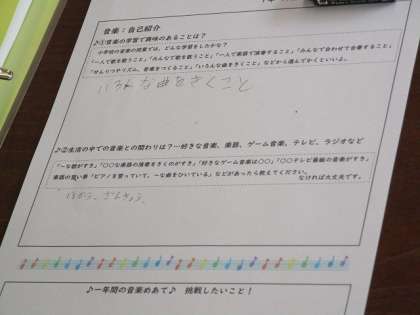 音楽：自己紹介
♪①音楽の学習で興味のあることは？
小学校の音楽の授業では、どんな学習をしたかな？
「一人で歌を歌うこと」「みんなで歌を歌うこと」「一人で楽器で演奏すること」「みんなで合わせて合奏すること」
「せんりつやリズム、音楽をつくること」「いろんな曲をきくこと」などから選んでかくといいよ。
いろんな曲をきくこと
♪②生活の中での音楽との関わりは？…好きな音楽、楽器、ゲーム音楽、テレビ、ラジオなど
「～な歌がすき」「○○な楽器の演奏をきくのがすき」「好きなゲーム音楽は○○」「○○テレビ番組の音楽がすき」
楽器の習い事「ピアノを習っていて、～な曲をひいている」などがあったら教えてください。
なければ大丈夫です。
♪一年間の音楽めあて♪ 挑戦したいこと！